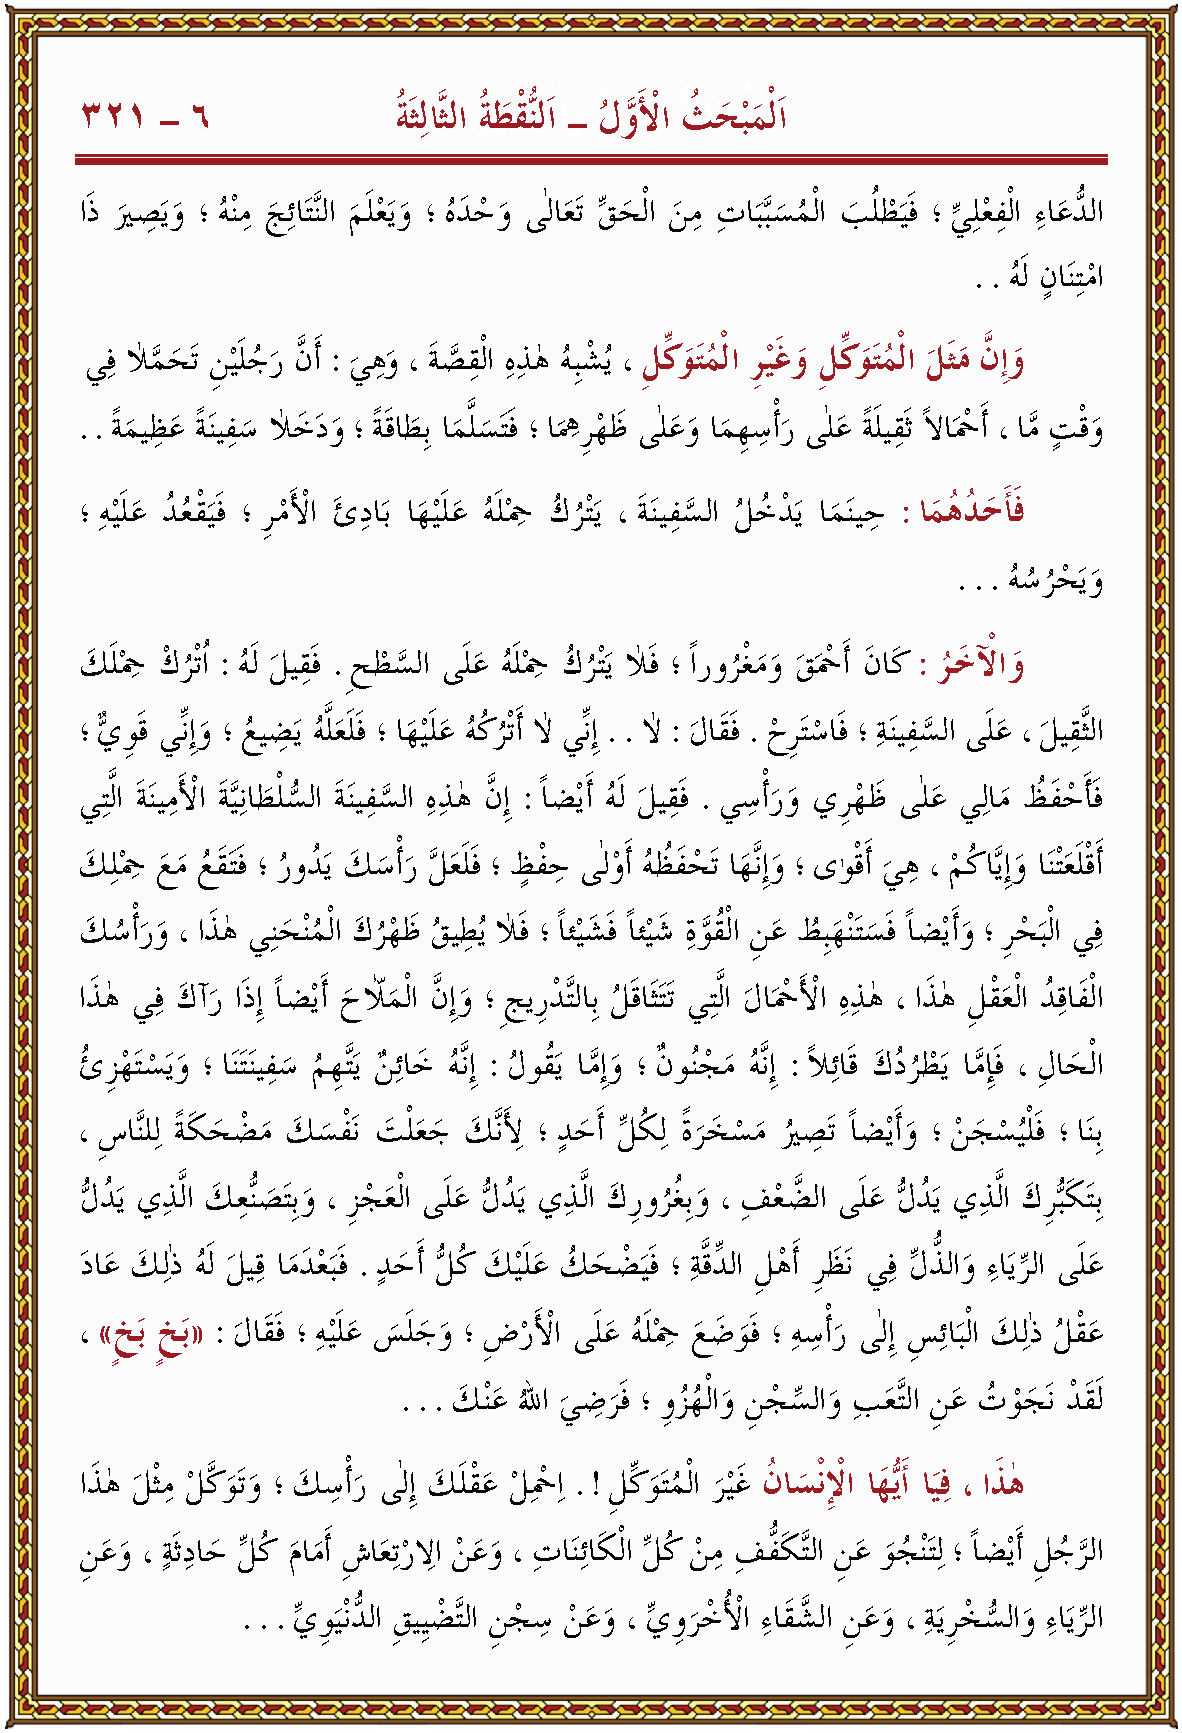 اَلْمَبْحَثُ الْأَوَّلُ ـ اَلنُّقْطَةُ الثَّالِثَةُ ٦ ـ ٣٢١
الدُّعَاءِ الْفِعْلِيِّ ؛ فَيَطْلُبَ الْمُسَبَّبَاتِ مِنَ الْحَقِّ تَعَالٰى وَحْدَهُ ؛ وَيَعْلَمَ النَّتَائِجَ مِنْهُ ؛ وَيَصِيرَ ذَا
امْتِنَانٍ لَهُ . .
وَإِنَّ مَثَلَ الْمُتَوَكِّلِ وَغَيْرِ الْمُتَوَكِّلِ ، يُشْبِهُ هٰذِهِ الْقِصَّةَ ، وَهِيَ : أَنَّ رَجُلَيْنِ تَحَمَّلاٰ فِي
وَقْتٍ مَّا ، أَحْمَالاً ثَقِيلَةً عَلٰى رَأْسِهِمَا وَعَلٰى ظَهْرِهِمَا ؛ فَتَسَلَّمَا بِطَاقَةً ؛ وَدَخَلاٰ سَفِينَةً عَظِيمَةً . .
فَأَحَدُهُمَا : حِينَمَا يَدْخُلُ السَّفِينَةَ ، يَتْرُكُ حِمْلَهُ عَلَيْهَا بَادِئَ الْأَمْرِ ؛ فَيَقْعُدُ عَلَيْهِ ؛
وَيَحْرُسُهُ . . .
وَالْآخَرُ : كَانَ أَحْمَقَ وَمَغْرُوراً ؛ فَلاٰ يَتْرُكُ حِمْلَهُ عَلَى السَّطْحِ . فَقِيلَ لَهُ : اُتْرُكْ حِمْلَكَ
الثَّقِيلَ ، عَلَى السَّفِينَةِ ؛ فَاسْتَرِحْ . فَقَالَ : لاٰ . . إِنِّي لاٰ أَتْرُكُهُ عَلَيْهَا ؛ فَلَعَلَّهُ يَضِيعُ ؛ وَإِنِّي قَوِيٌّ ؛
فَأَحْفَظُ مَالِي عَلٰى ظَهْرِي وَرَأْسِي . فَقِيلَ لَهُ أَيْضاً : إِنَّ هٰذِهِ السَّفِينَةَ السُّلْطَانِيَّةَ الْأَمِينَةَ الَّتِي
أَقْلَعَتْنَا وَإِيَّاكُمْ ، هِيَ أَقْوٰى ؛ وَإِنَّهَا تَحْفَظُهُ أَوْلٰى حِفْظٍ ؛ فَلَعَلَّ رَأْسَكَ يَدُورُ ؛ فَتَقَعُ مَعَ حِمْلِكَ
فِي الْبَحْرِ ؛ وَأَيْضاً فَسَتَنْهَبِطُ عَنِ الْقُوَّةِ شَيْئاً فَشَيْئاً ؛ فَلاٰ يُطِيقُ ظَهْرُكَ الْمُنْحَنِي هٰذَا ، وَرَأْسُكَ
الْفَاقِدُ الْعَقْلِ هٰذَا ، هٰذِهِ الْأَحْمَالَ الَّتِي تَتَثَاقَلُ بِالتَّدْرِيجِ ؛ وَإِنَّ الْمَلَّاحَ أَيْضاً إِذَا رَآكَ فِي هٰذَا
الْحَالِ ، فَإِمَّا يَطْرُدُكَ قَائِلاً : إِنَّهُ مَجْنُونٌ ؛ وَإِمَّا يَقُولُ : إِنَّهُ خَائِنٌ يَتَّهِمُ سَفِينَتَنَا ؛ وَيَسْتَهْزِئُ
بِنَا ؛ فَلْيُسْجَنْ ؛ وَأَيْضاً تَصِيرُ مَسْخَرَةً لِكُلِّ أَحَدٍ ؛ لِأَنَّكَ جَعَلْتَ نَفْسَكَ مَضْحَكَةً لِلنَّاسِ ،
بِتَكَبُّرِكَ الَّذِي يَدُلُّ عَلَى الضَّعْفِ ، وَبِغُرُورِكَ الَّذِي يَدُلُّ عَلَى الْعَجْزِ ، وَبِتَصَنُّعِكَ الَّذِي يَدُلُّ
عَلَى الرِّيَاءِ وَالذُّلِّ فِي نَظَرِ أَهْلِ الدِّقَّةِ ؛ فَيَضْحَكُ عَلَيْكَ كُلُّ أَحَدٍ . فَبَعْدَمَا قِيلَ لَهُ ذٰلِكَ عَادَ
عَقْلُ ذٰلِكَ الْبَائِسِ إِلٰى رَأْسِهِ ؛ فَوَضَعَ حِمْلَهُ عَلَى الْأَرْضِ ؛ وَجَلَسَ عَلَيْهِ ؛ فَقَالَ : «بَخٍ بَخٍ» ،
لَقَدْ نَجَوْتُ عَنِ التَّعَبِ وَالسِّجْنِ وَالْهُزُوِ ؛ فَرَضِيَ اللهُ عَنْكَ . . .
هٰذَا ، فَيَا أَيُّهَا الْإِنْسَانُ غَيْرَ الْمُتَوَكِّلِ ! . اِحْمِلْ عَقْلَكَ إِلٰى رَأْسِكَ ؛ وَتَوَكَّلْ مِثْلَ هٰذَا
الرَّجُلِ أَيْضاً ؛ لِتَنْجُوَ عَنِ التَّكَفُّفِ مِنْ كُلِّ الْكَائِنَاتِ ، وَعَنْ الِارْتِعَاشِ أَمَامَ كُلِّ حَادِثَةٍ ، وَعَنِ
الرِّيَاءِ وَالسُّخْرِيَةِ ، وَعَنِ الشَّقَاءِ الْأُخْرَوِيِّ ، وَعَنْ سِجْنِ التَّضْيِيقِ الدُّنْيَوِيِّ . . .